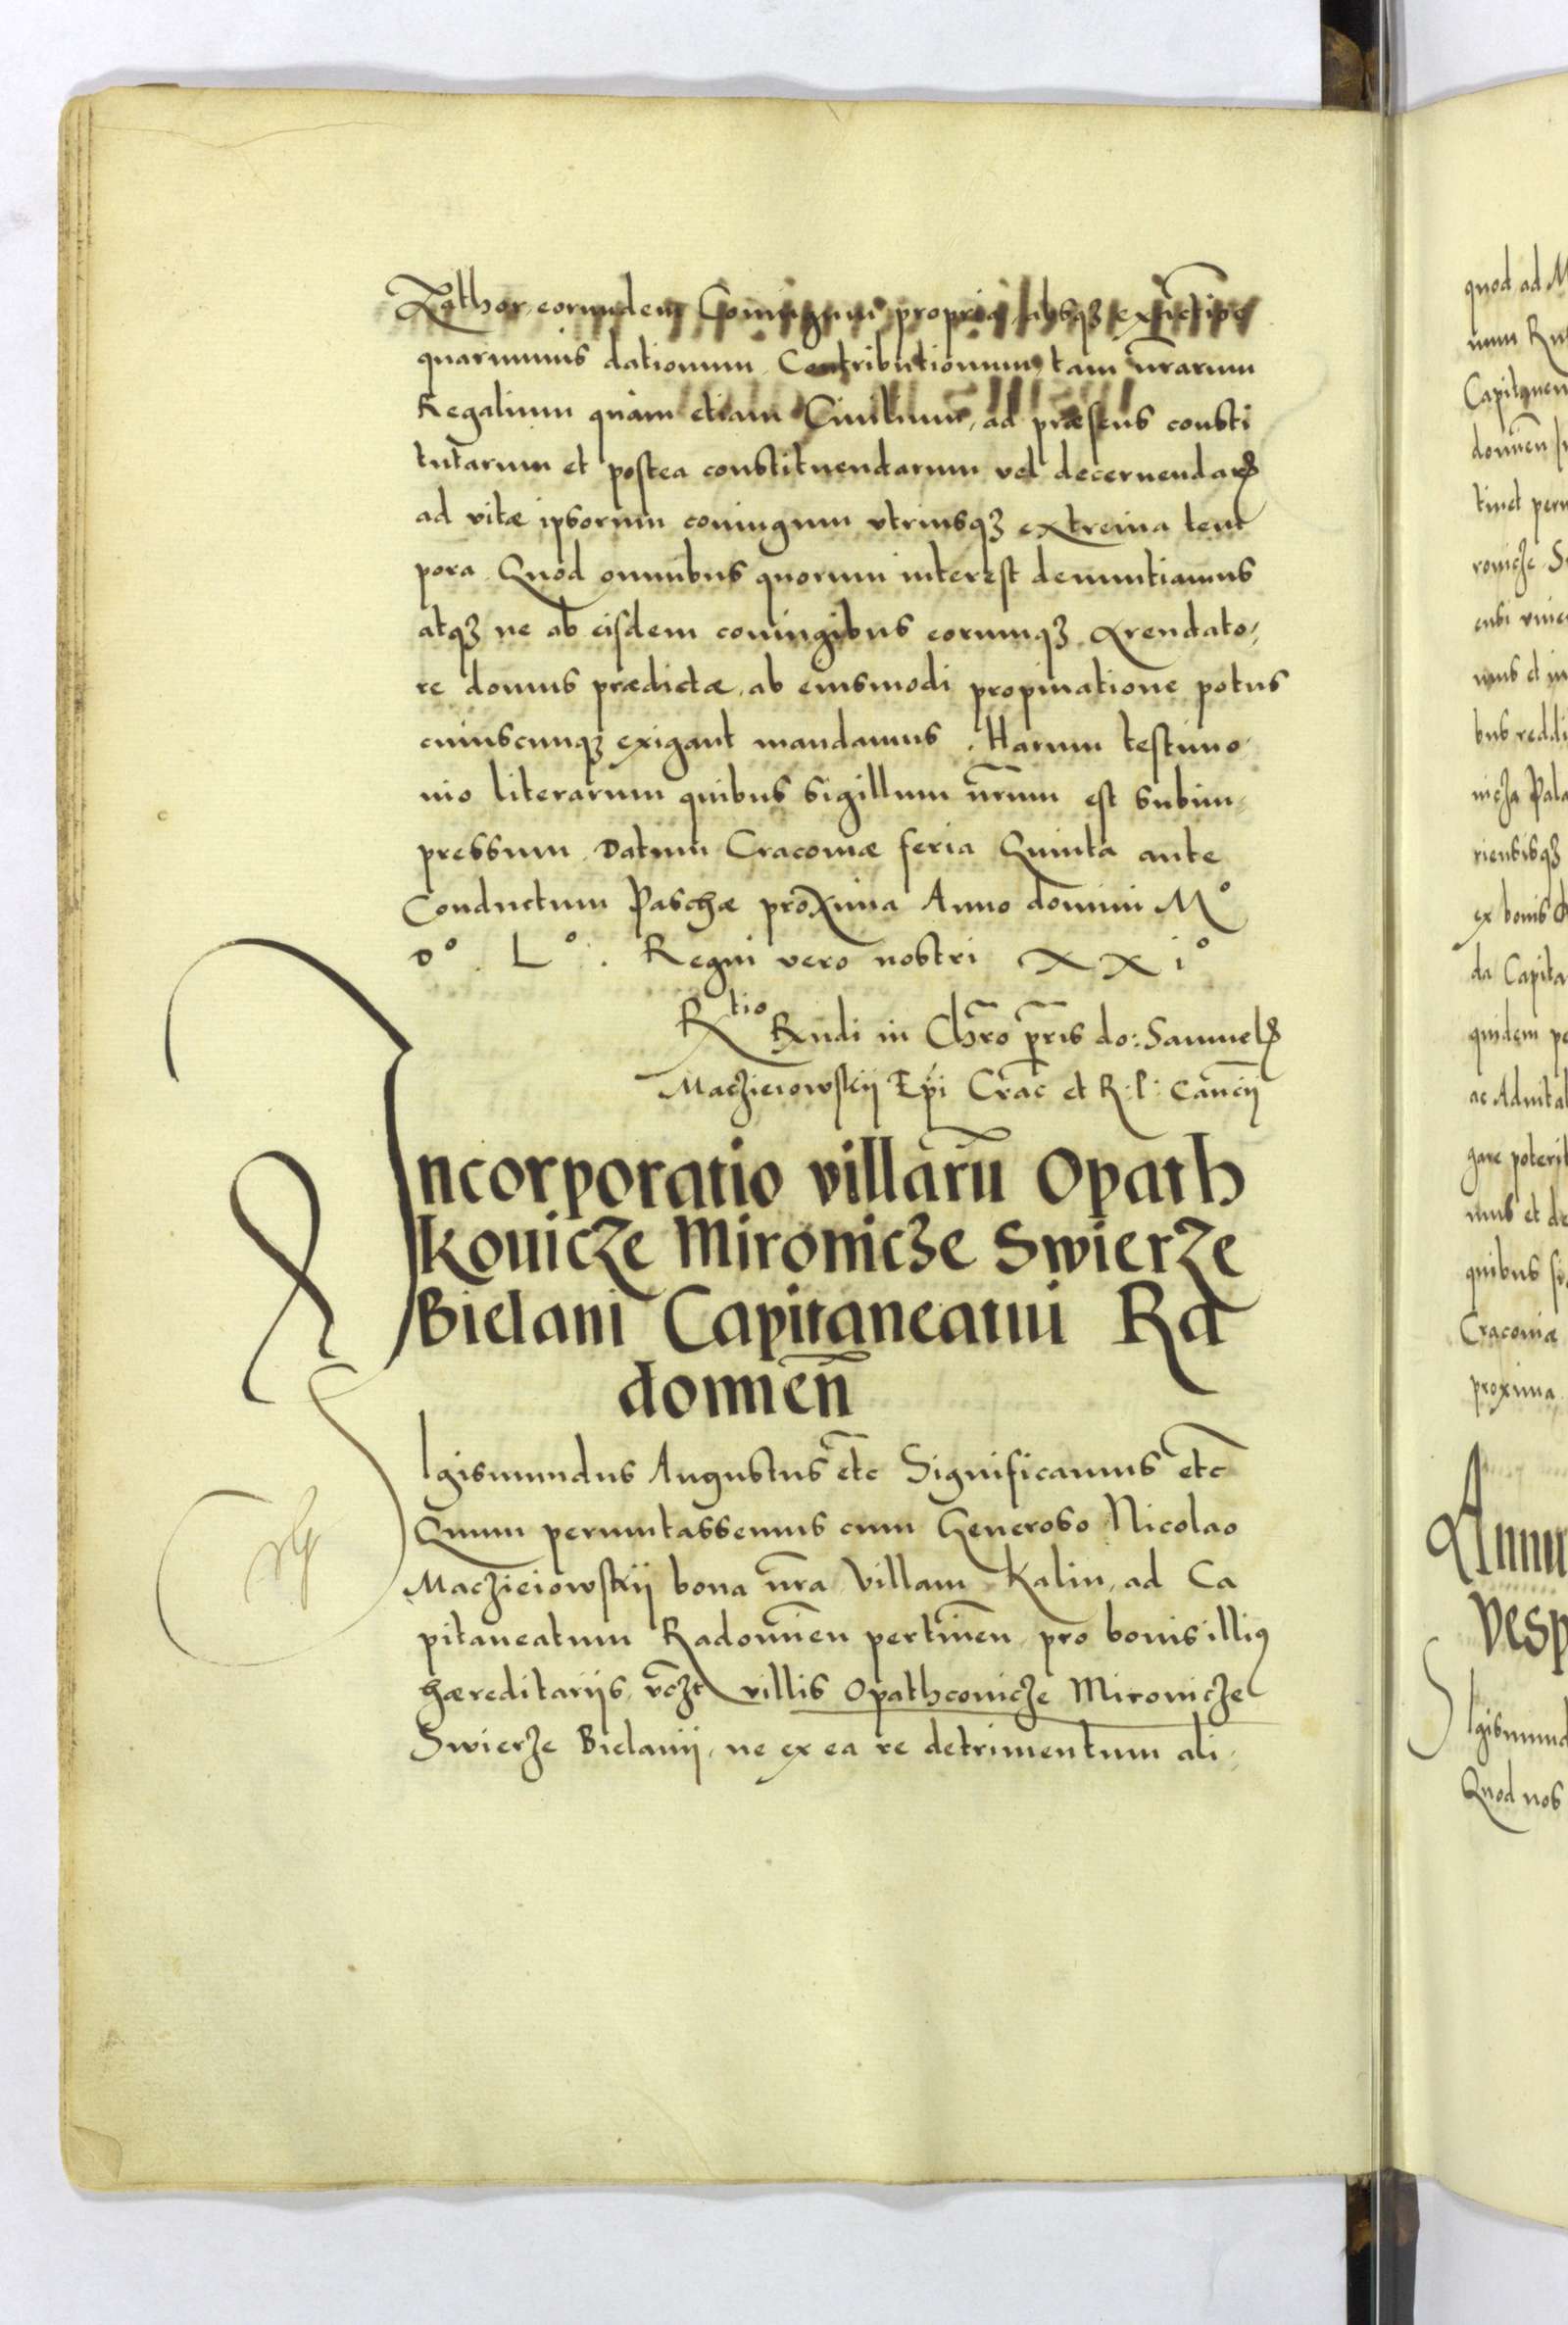 Zathor eorundem Coniugum propria, absqȝ exactione
quarumuis dationum Contributionum, tam nr̄arum
Regalium quàm etiam Ciuilium, ad præsens consti
tutarum et postea constituendarum vel decernendarꝝ
ad vitæ ipsorum coniugum vtriusqȝ extrema tem
pora. Quod omnibus quorum interest denuntiamus
atqȝ ne ab eisdem coniugibus eorumqȝ Arendato,
re domus prædictæ, ab eiusmodi propinatione potus
cuiuscunqȝ exigant mandamus. Harum testimo
nio literarum quibus sigillum nr̄um est subim,
pressum. Datum Cracoviæ feria Quinta ante
Conductum Paschæ proxima Anno domini Mº
Dº. Lº. Regni vero nostri xxiº
Rtio Rndi in Chr̄o pr̄is do: Samuelꝭ
Macziejowskij Ep̄i Crac̄ et R: P: Canc̄ij
Incorporatio villarū Opath
kouicze Mironicze Swierze
Bielani Capitaneatui Ra
domien̄
Sigismundus Augustus etc̄ Significamus etc̄
Quum permutassemus cum Generoso Nicolao
Maczieiowskij bona nr̄a Villam Kalin, ad Ca
pitaneatum Radomīen pertinēn, pro bonis illiꝰ
hæreditarijs, vc̄zt villis Opathconicze Mironicze
Swierze Bielanij, ne ex ea re detrimentum ali,
quod ad M
num Ra
Capitanen
domien̄
tinet per
ronicze S
mus et in
bus reddi
nicza Pala
riensisqȝ
ex bonis
da Capita
quidem pe
ac Aduital
gare poterit
mus et de
quibus si
Cracoviæ
proxima
Annu
Vesp
Sigismund
Quod nos